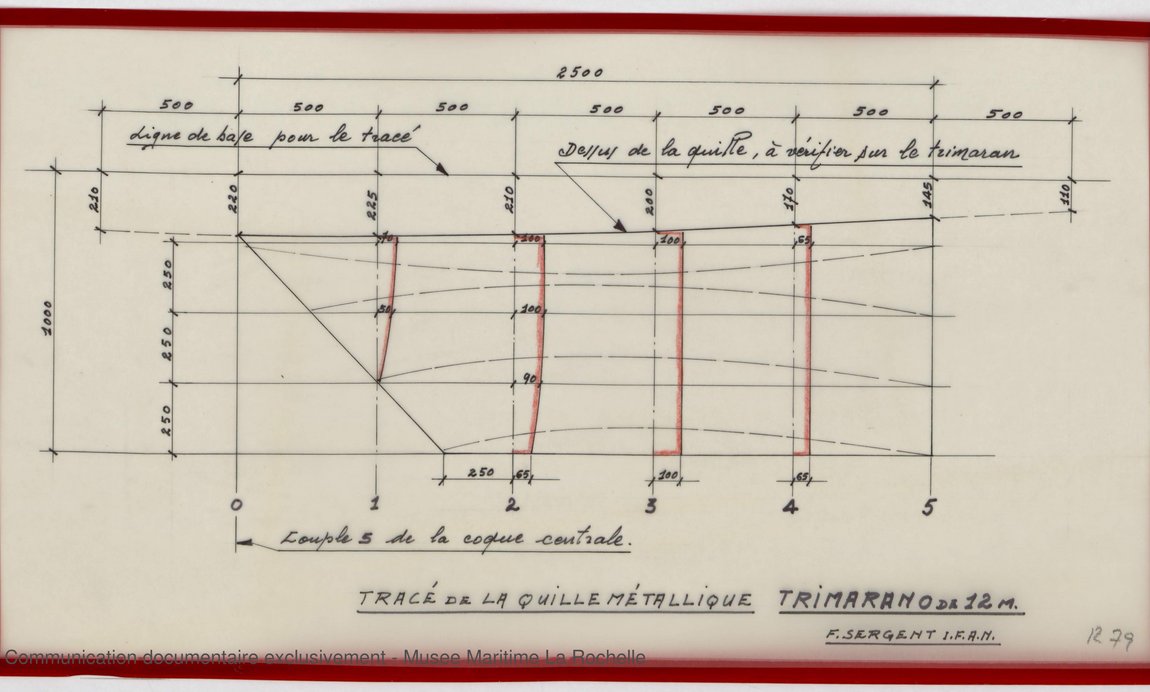 2500
500 500 500 500 500 500 500
Ligne de base pour le tracé
Dessus de la quille, à vérifier sur le trimaran
210 220 225 210 200 170 145 110
70 100 100 65
250
1000
50 100
250
90
250
250 65 100 65
0 1 2 3 4 5
Couple 5 de la coque centrale.
TRACÉ DE LA QUILLE MÉTALLIQUE TRIMARANO DE 12 M.
F. SERGENT I.F.A.N.
R 79
Communication documentaire exclusivement - Musee Maritime La Rochelle